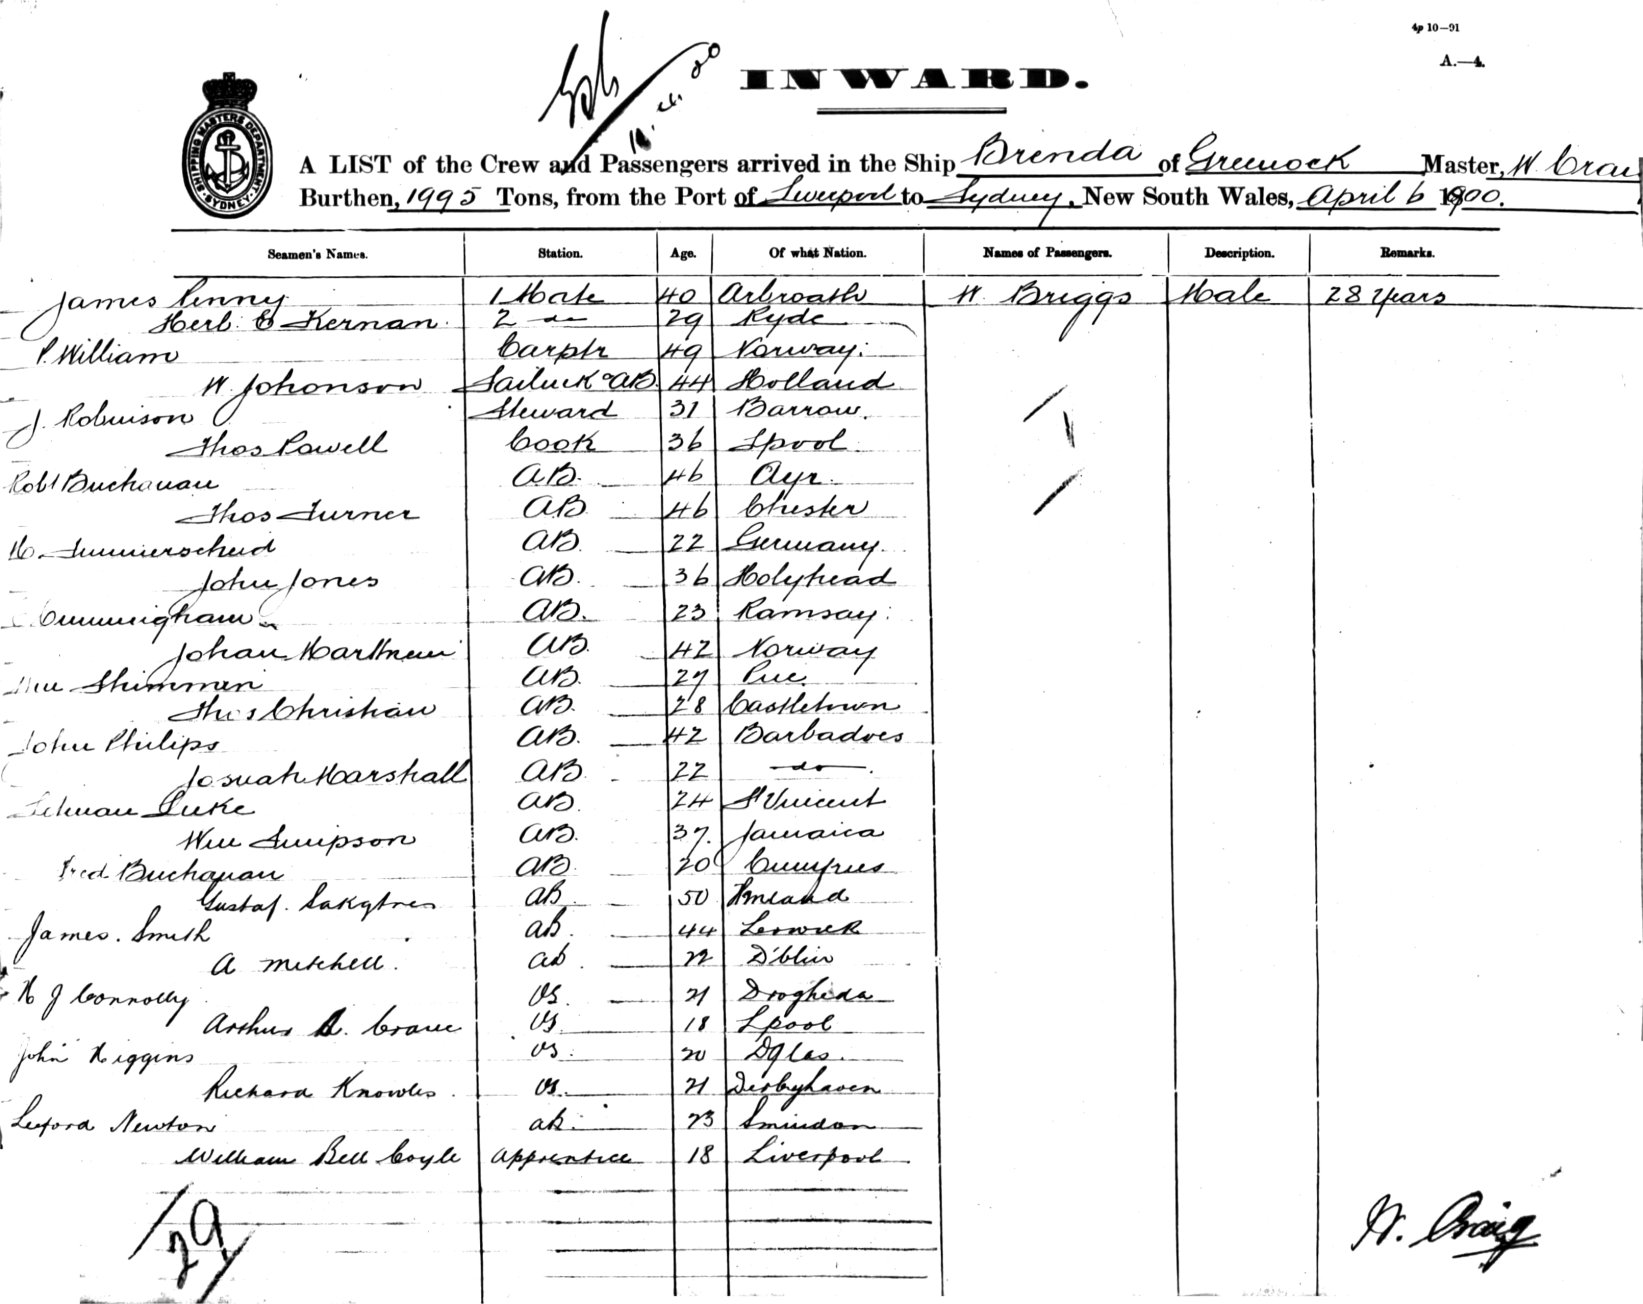 4p 10—91
A.—4.
INWARD.
SHIPPING MASTERS DEPARTMENT SYDNEY
A LIST of the Crew and Passengers arrived in the Ship Brenda of Greenock Master, W. Craig
Burthen, 1995 Tons, from the Port of Liverpool to Sydney, New South Wales, April 6 1900.
Seamen's Names. Station. Age. Of what Nation. Names of Passengers. Description. Remarks.
James Penny 1 Mate 40 Arbroath W. Briggs Male 28 years
Herb. E Kernan 2 do 29 Ryde
P. William Carptr 49 Norway
W. Johonson AB 44 Holland
J. Robinson Steward 31 Barrow.
Thos Powell Cook 36 Lpool
Robt Buchanan AB. 46 Ayr.
Thos Turner AB 46 Chester
AB. 22 Germany.
John Jones AB. 36 Holyhead
Cunningham AB. 23 Ramsay
Johan AB. 42 Norway
Shimmin AB. 27
Thos Christian AB. 28 Castletown
John Philips AB. 42 Barbadoes
Josuah Marshall AB. 22 do
Luke AB. 24 St Vincent
Wm Simpson AB. 37. Jamaica
Fred. Buchanan AB. 20
Gustaf. AB. 50 Finland
James. Smith AB. 44 Lerwick
A Mitchell. AB. 22 D'blin
H J Connolly OS. 21 Drogheda
Arthur Crane OS. 18 Lpool
John Higgins OS. 20 Dglas.
Richard Knowles. OS. 21 Derbyhaven
Newton AB. 23
William Bell Coyle Apprentice 18 Liverpool
29
W. Craig